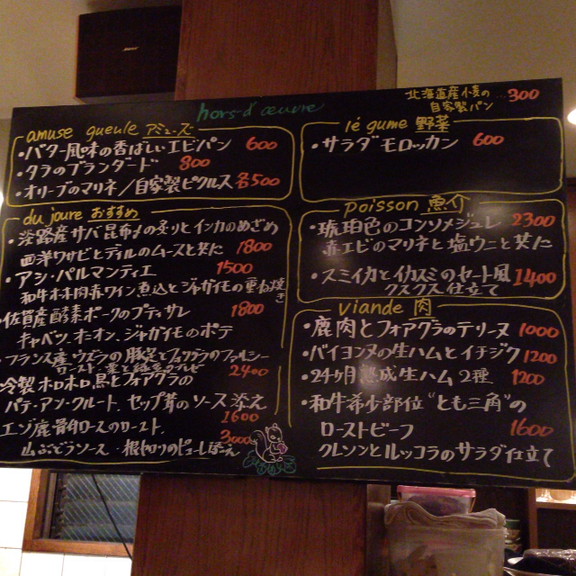 BOSE
hors d'œuvre
北海道産小麦の
自家製パン … 300
amuse gueule アミューズ
・バター風味の香ばしいエビパン 600
・タラのブランダード 800
・オリーブのマリネ/自家製ピクルス 各500
du joure おすすめ
・淡路産サバ昆布〆の炙りとインカのめざめ
西洋ワサビとディルのムースと共に 1800
・アシ・パルマンティエ 1500
和牛ホホ肉赤ワイン煮込とジャガイモの重ね焼き
・佐賀産酵素ポークのプティサレ 1800
キャベツ、オニオン、ジャガイモのポテ
・フランス産ウズラの豚足とフォワグラのファルシー
2400
冷製ホロホロ鳥とフォアグラの
パテ・アン・クルート、セップ茸のソース添え
1600
エゾ鹿骨付ロースのロースト、
山ぶどうソース・根セロリのピューレ添え 3000
légume 野菜
・サラダ モロッカン 600
poisson 魚介
・琥珀色のコンソメジュレ 2300
赤エビのマリネと塩ウニと共に
・スミイカとイカスミのセート風 1400
クスクス仕立て
viande 肉
・鹿肉とフォアグラのテリーヌ 1000
・バイヨンヌの生ハムとイチジク 1200
・24ヶ月熟成生ハム2種 1200
・和牛希少部位"とも三角"の
ローストビーフ 1600
クレソンとルッコラのサラダ仕立て